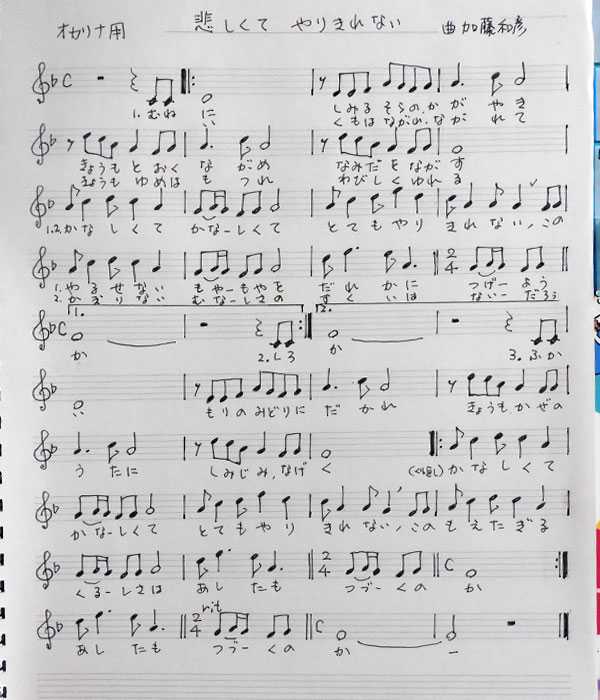 オカリナ用 悲しくて やりきれない 曲 加藤和彦
C
1. むね に しみる そらの、か が やき
い くもは ながめ、なが れて
きょうも とおく な がめ なみだ を ながす
きょうも ゆめは も つれ わびしく ゆれる
1.2. かな しくて かなーしくて とてもやり きれない、この
1. やるせない もやーもやを だれ かに 2/4 つげー よう
2. かぎりない むなーしさの すく いは ないー だろう
C 1. 2.
か 2. しろ か 3. ふか
い もりの みどりに だ かれ きょうも かぜの
うたに しみじみ、なげ く (くり返し) かなしくて
かなーしくて とてもやり きれない、この もえたぎる
2/4 C
くるーしさは あし たも つづー くの か
rit
2/4 C
あし たも つづー くの か ー